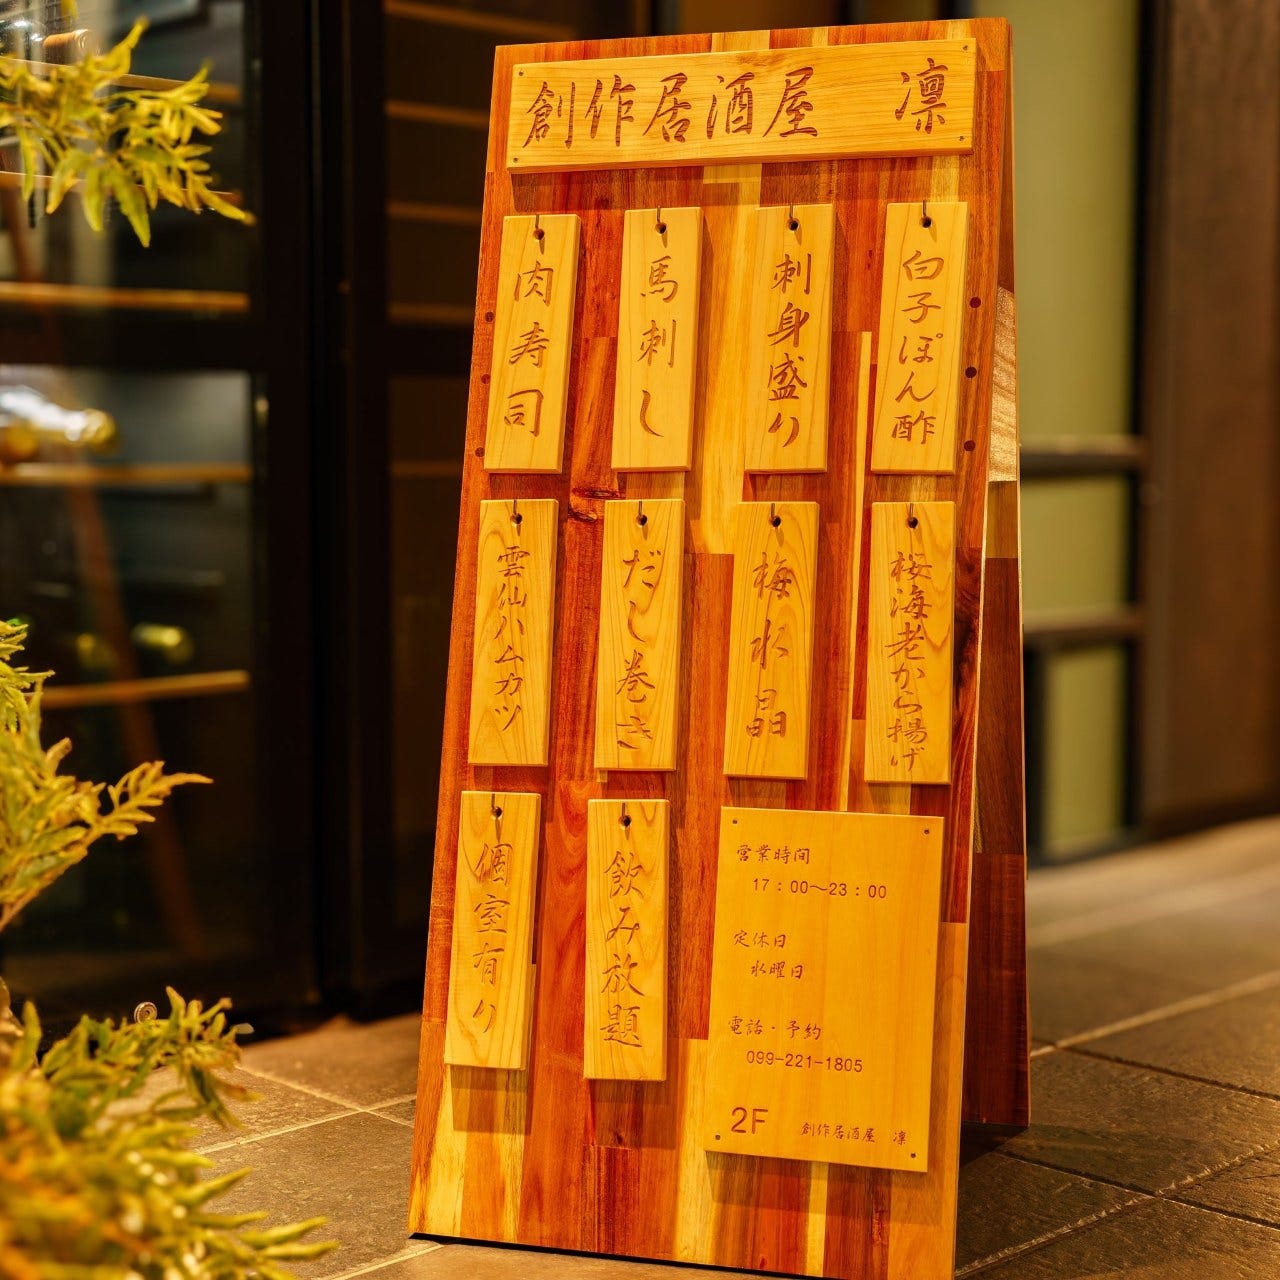 創作居酒屋 凛
肉寿司
馬刺し
刺身盛り
白子ぽん酢
雲仙ハムカツ
だし巻き
梅水晶
桜海老から揚げ
個室有り
飲み放題
営業時間
17：00〜23：00
定休日
水曜日
電話・予約
099-221-1805
2F 創作居酒屋 凛